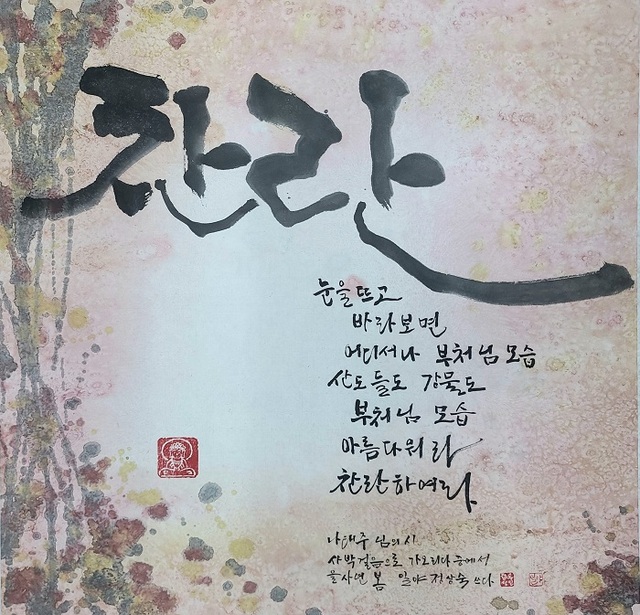 찬란
눈을 뜨고
바라보면
어디서나 부처님 모습
산도 들도 강물도
부처님 모습
아름다워라
찬란하여라
나태주 님의 시
사박걸음으로 가오리다 중에서
을사년 봄 일야 정상숙 쓰다